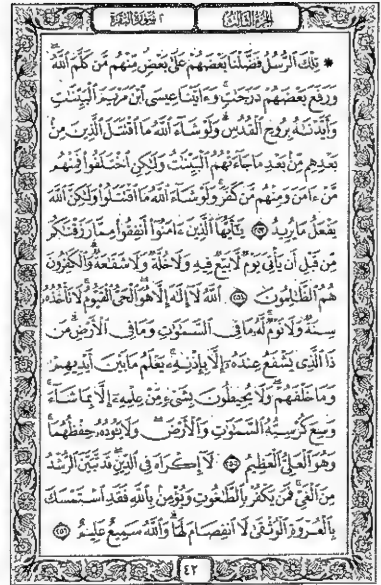 الجزء الثالث
٢ سورة البقرة
* تِلْكَ ٱلرُّسُلُ فَضَّلْنَا بَعْضَهُمْ عَلَىٰ بَعْضٍۘ مِّنْهُم مَّن كَلَّمَ ٱللَّهُۖ
وَرَفَعَ بَعْضَهُمْ دَرَجَٰتٍۚ وَءَاتَيْنَا عِيسَى ٱبْنَ مَرْيَمَ ٱلْبَيِّنَٰتِ
وَأَيَّدْنَٰهُ بِرُوحِ ٱلْقُدُسِۗ وَلَوْ شَآءَ ٱللَّهُ مَا ٱقْتَتَلَ ٱلَّذِينَ مِنۢ
بَعْدِهِم مِّنۢ بَعْدِ مَا جَآءَتْهُمُ ٱلْبَيِّنَٰتُ وَلَٰكِنِ ٱخْتَلَفُوا۟ فَمِنْهُم
مَّنْ ءَامَنَ وَمِنْهُم مَّن كَفَرَۚ وَلَوْ شَآءَ ٱللَّهُ مَا ٱقْتَتَلُوا۟ وَلَٰكِنَّ ٱللَّهَ
يَفْعَلُ مَا يُرِيدُ ٢٥٣ يَٰٓأَيُّهَا ٱلَّذِينَ ءَامَنُوٓا۟ أَنفِقُوا۟ مِمَّا رَزَقْنَٰكُم
مِّن قَبْلِ أَن يَأْتِىَ يَوْمٌ لَّا بَيْعٌ فِيهِ وَلَا خُلَّةٌ وَلَا شَفَٰعَةٌۗ وَٱلْكَٰفِرُونَ
هُمُ ٱلظَّٰلِمُونَ ٢٥٤ ٱللَّهُ لَآ إِلَٰهَ إِلَّا هُوَ ٱلْحَىُّ ٱلْقَيُّومُۚ لَا تَأْخُذُهُۥ
سِنَةٌ وَلَا نَوْمٌۚ لَّهُۥ مَا فِى ٱلسَّمَٰوَٰتِ وَمَا فِى ٱلْأَرْضِۗ مَن
ذَا ٱلَّذِى يَشْفَعُ عِندَهُۥٓ إِلَّا بِإِذْنِهِۦۚ يَعْلَمُ مَا بَيْنَ أَيْدِيهِمْ
وَمَا خَلْفَهُمْۖ وَلَا يُحِيطُونَ بِشَىْءٍ مِّنْ عِلْمِهِۦٓ إِلَّا بِمَا شَآءَۚ
وَسِعَ كُرْسِيُّهُ ٱلسَّمَٰوَٰتِ وَٱلْأَرْضَۖ وَلَا يَـُٔودُهُۥ حِفْظُهُمَاۚ
وَهُوَ ٱلْعَلِىُّ ٱلْعَظِيمُ ٢٥٥ لَآ إِكْرَاهَ فِى ٱلدِّينِۖ قَد تَّبَيَّنَ ٱلرُّشْدُ
مِنَ ٱلْغَىِّۚ فَمَن يَكْفُرْ بِٱلطَّٰغُوتِ وَيُؤْمِنۢ بِٱللَّهِ فَقَدِ ٱسْتَمْسَكَ
بِٱلْعُرْوَةِ ٱلْوُثْقَىٰ لَا ٱنفِصَامَ لَهَاۗ وَٱللَّهُ سَمِيعٌ عَلِيمٌ ٢٥٦
٤٢